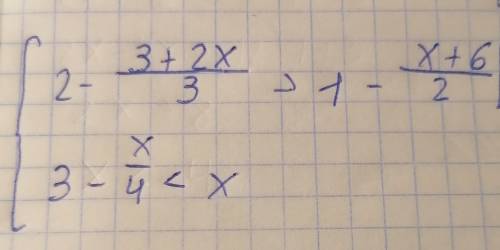 { 2 - \frac{3+2x}{3} > 1 - \frac{x+6}{2}
3 - \frac{x}{4} < x